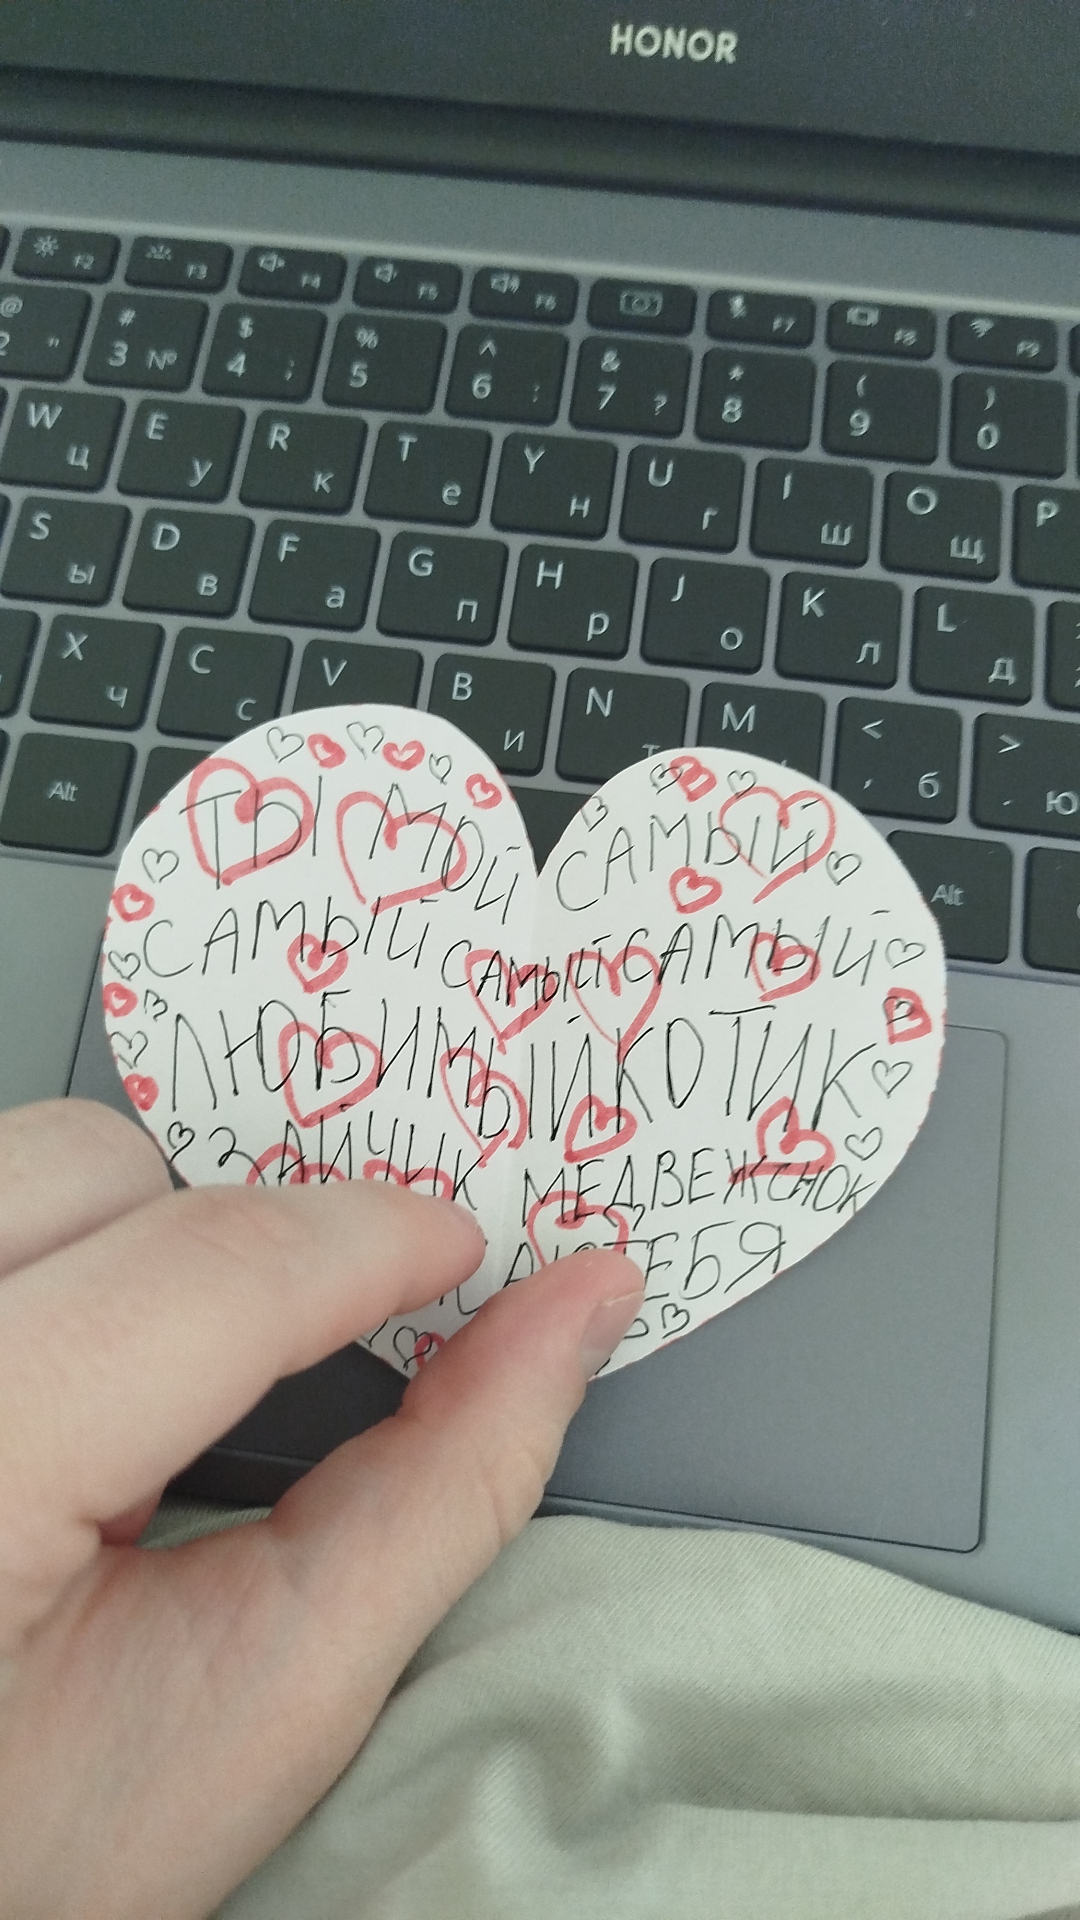 HONOR
F2 F3 F4 F5 F6 F7 F8 F9
@ 2 " # 3 № $ 4 ; % 5 ^ 6 : & 7 ? * 8 ( 9 ) 0
W Ц E У R К T Е Y Н U Г I Ш O Щ P
S Ы D В F А G П H Р J О K Л L Д
X Ч C С V B И N Т M < , б > . Ю
Alt Alt
ТЫ МОЙ САМЫЙ
САМЫЙ САМЫЙ САМЫЙ
ЛЮБИМЫЙ КОТИК
ЗАЙЧИК МЕДВЕЖОНОК
ТЕБЯ